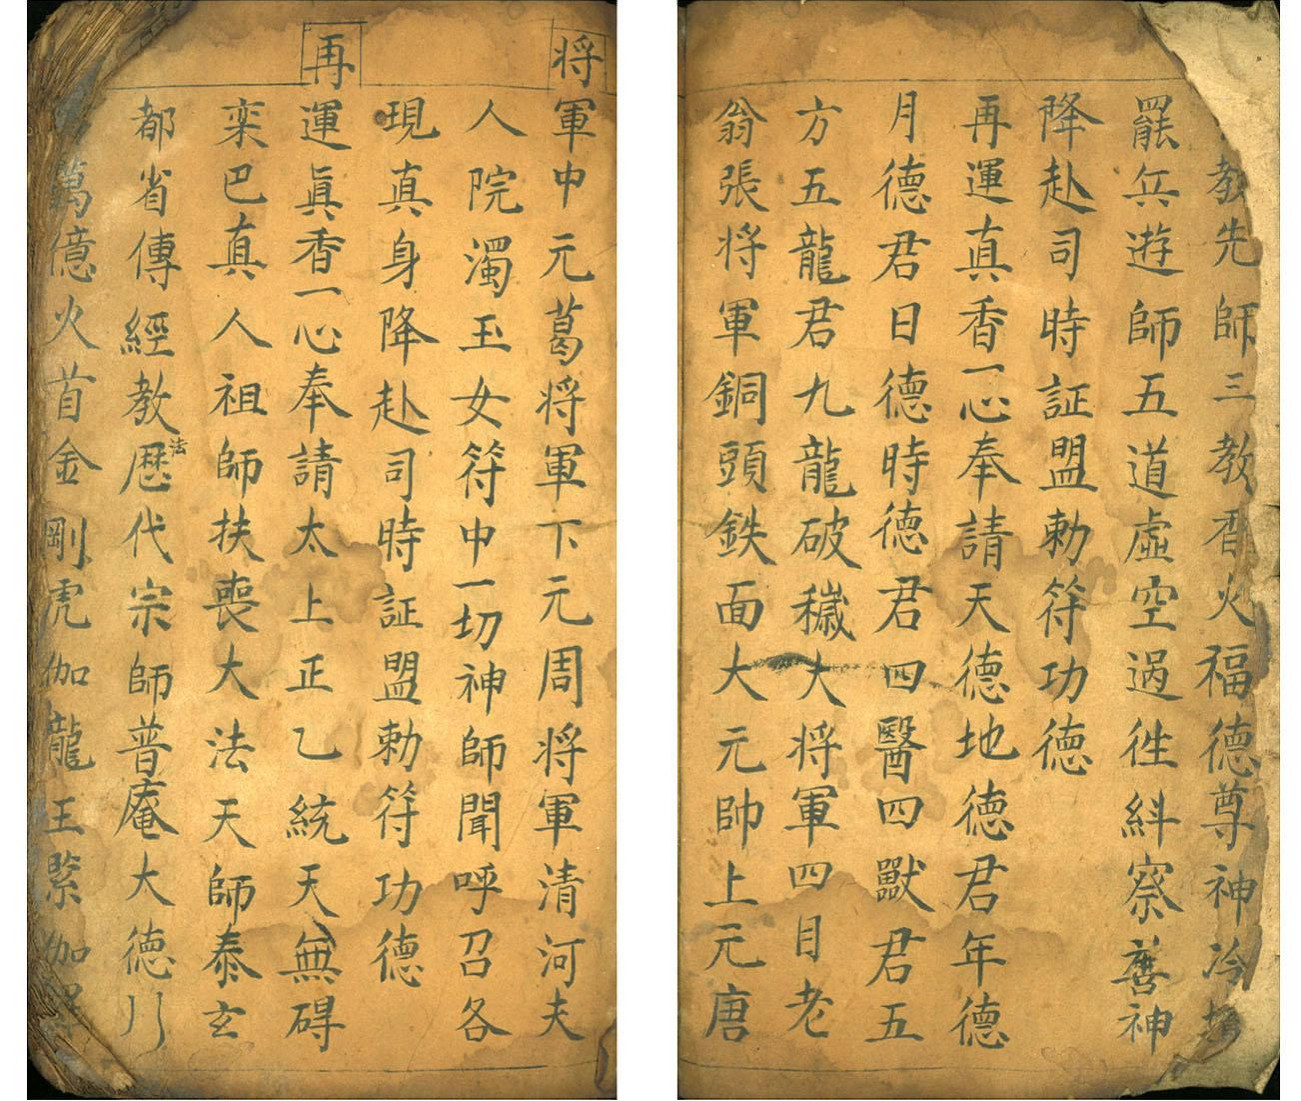 教先師三教香火福德尊神冷
罷兵遊師五道虛空過徃糾察善神
降赴司時証盟勅符功德
再運真香一心奉請天德地德君年德
月德君日德時德君四醫四獸君五
方五龍君九龍破穢大将軍四目老
翁張将軍銅頭鉄面大元帥上元唐
将軍中元葛将軍下元周将軍清河夫
人院濁玉女符中一切神師聞呼召各
現真身降赴司時証盟勅符功德
再運眞香一心奉請太上正乙統天無碍
栾巴真人祖師扶喪大法天師泰玄
都省傳經教法厯代宗師普庵大德
萬億火首金剛虎伽龍王緊伽